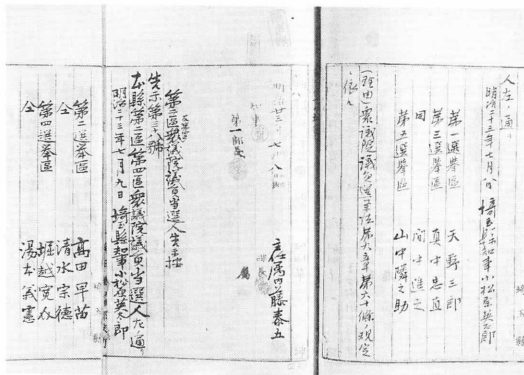 人左ノ通
明治二十三年七月 日 埼玉縣知事小松原英太郎
第一選擧區 天野三郎
第三選擧區 真中忠直
同 間中進之
第五選擧區 山中隣之助
理由 衆議院議員選擧法第六十五条第六十條ノ規定
依ル
明治廿三 七 八
知事
第一部長
主任属 内藤泰五
属
第二區衆議院議員當選人告示按
告示第三十八號
本縣第二區第四區衆議院議員當選人左ノ通
明治二十三年七月九日 埼玉縣知事小松原英太郎
第二選擧區 高田早苗
仝 清水宗徳
第四選擧區 堀越寛介
仝 湯本義憲